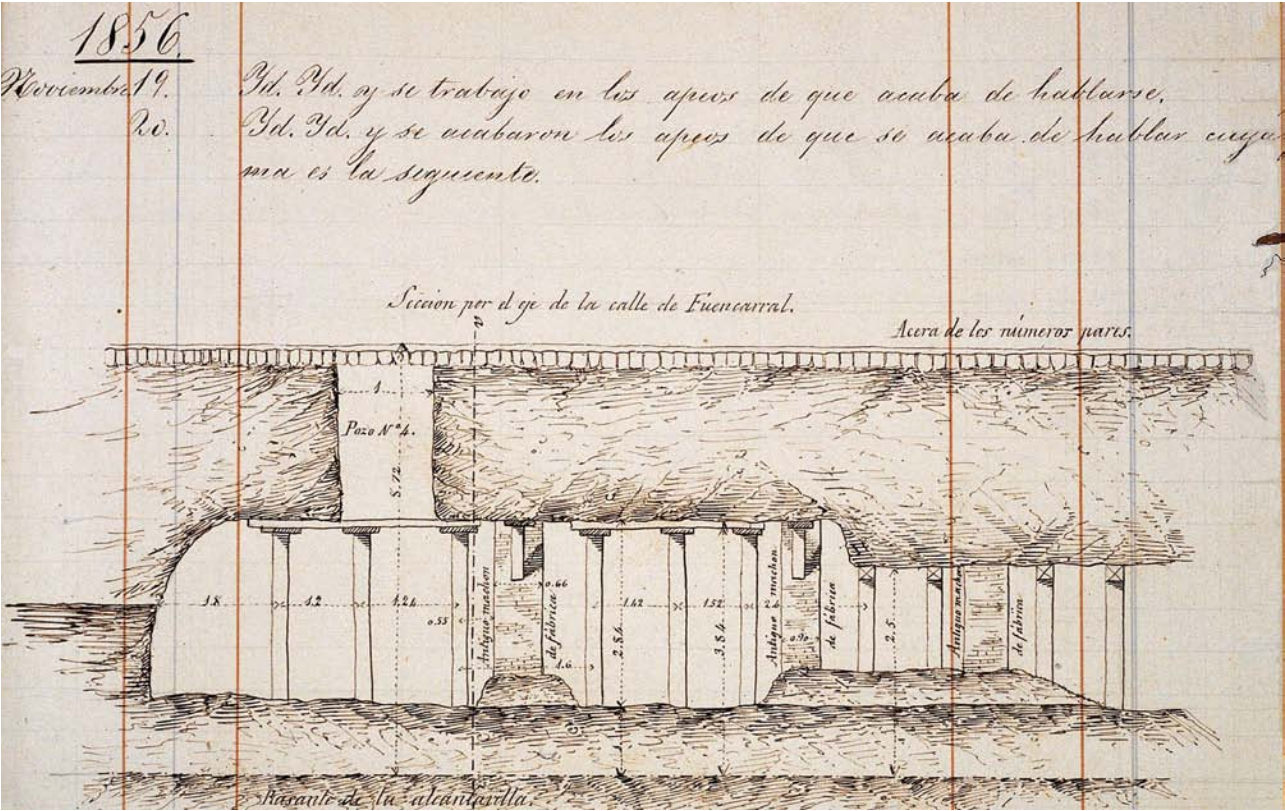 1856.
Noviembre 19. Yd. Yd. y se trabajo en los apeos de que acaba de hablarse.
20. Yd. Yd. y se acabaron los apeos de que se acaba de hablar cuya
ma es la siguiente.
Seccion por el eje de la calle de Fuencarral.
Acera de los números pares.
1
Pozo Nº 4.
5.72
1.8
1.2
1.24
0.55
Antiguo machon
de fábrica
0.66
1.6
1.42
2.84
1.52
3.84
2.4
Antiguo machon
de fábrica
0.90
2.5
Antiguo machon
de fábrica
Rasante de la alcantarilla.